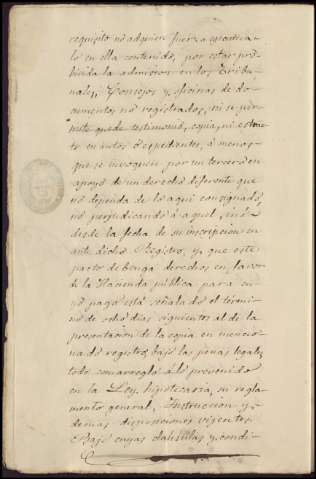 requisito no adquiere fuerza escritura
lo en ella contenido, por estar pro-
hibida la admision en los Tribu-
nales, Consejos y oficinas de do-
cumentos no registrados, ni se per-
mite quede testimonio, copia, ni
en autos ó espedientes, á menos
que se invoquen por un tercero en
apoyo de un derecho diferente que
no dependa de lo aqui consignado,
no perjudicando á aquel, sinó
desde la fecha de su inscripcion en
ante dicho Registro; y, que este
pacto devenga derechos en favor
de la Hacienda pública para cu-
yo pago está señalado el térmi-
no de ocho dias siguientes al de la
presentacion de la copia en mencio-
nado registro, bajo las penas legales,
todo con arreglo á lo prevenido
en la Ley hipotecaria, su regla-
mento general, Instruccion y
demas disposiciones vigentes.
Bajo cuyas cláusulas y condi-